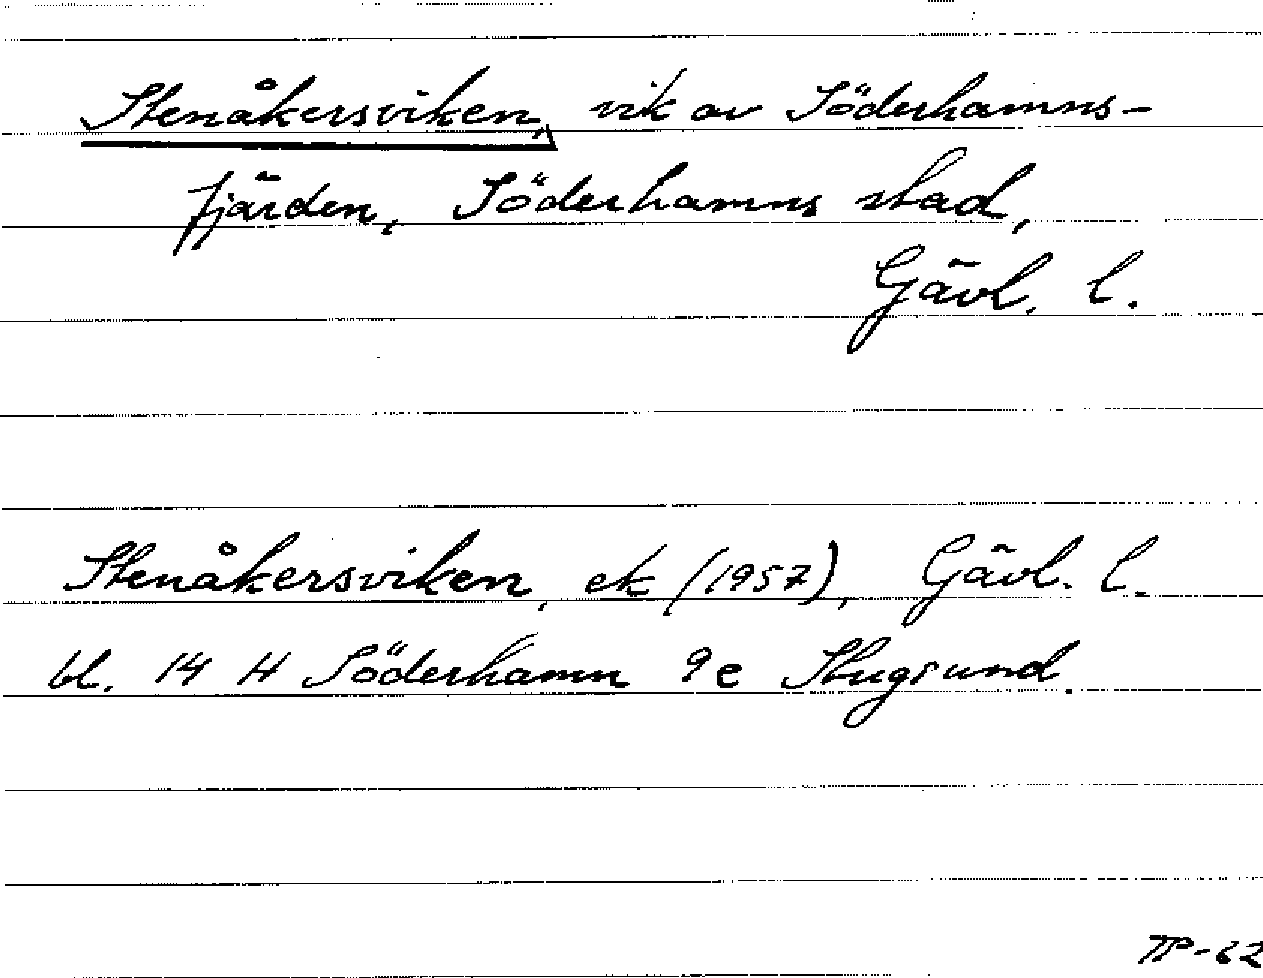 Stenåkersviken, vik av Söderhamns-
fjärden, Söderhamns stad,
Gävl. l.
Stenåkersviken, ek (1957), Gävl. l.
bl. 14 H Söderhamn 9e Stugsund.
TP-62